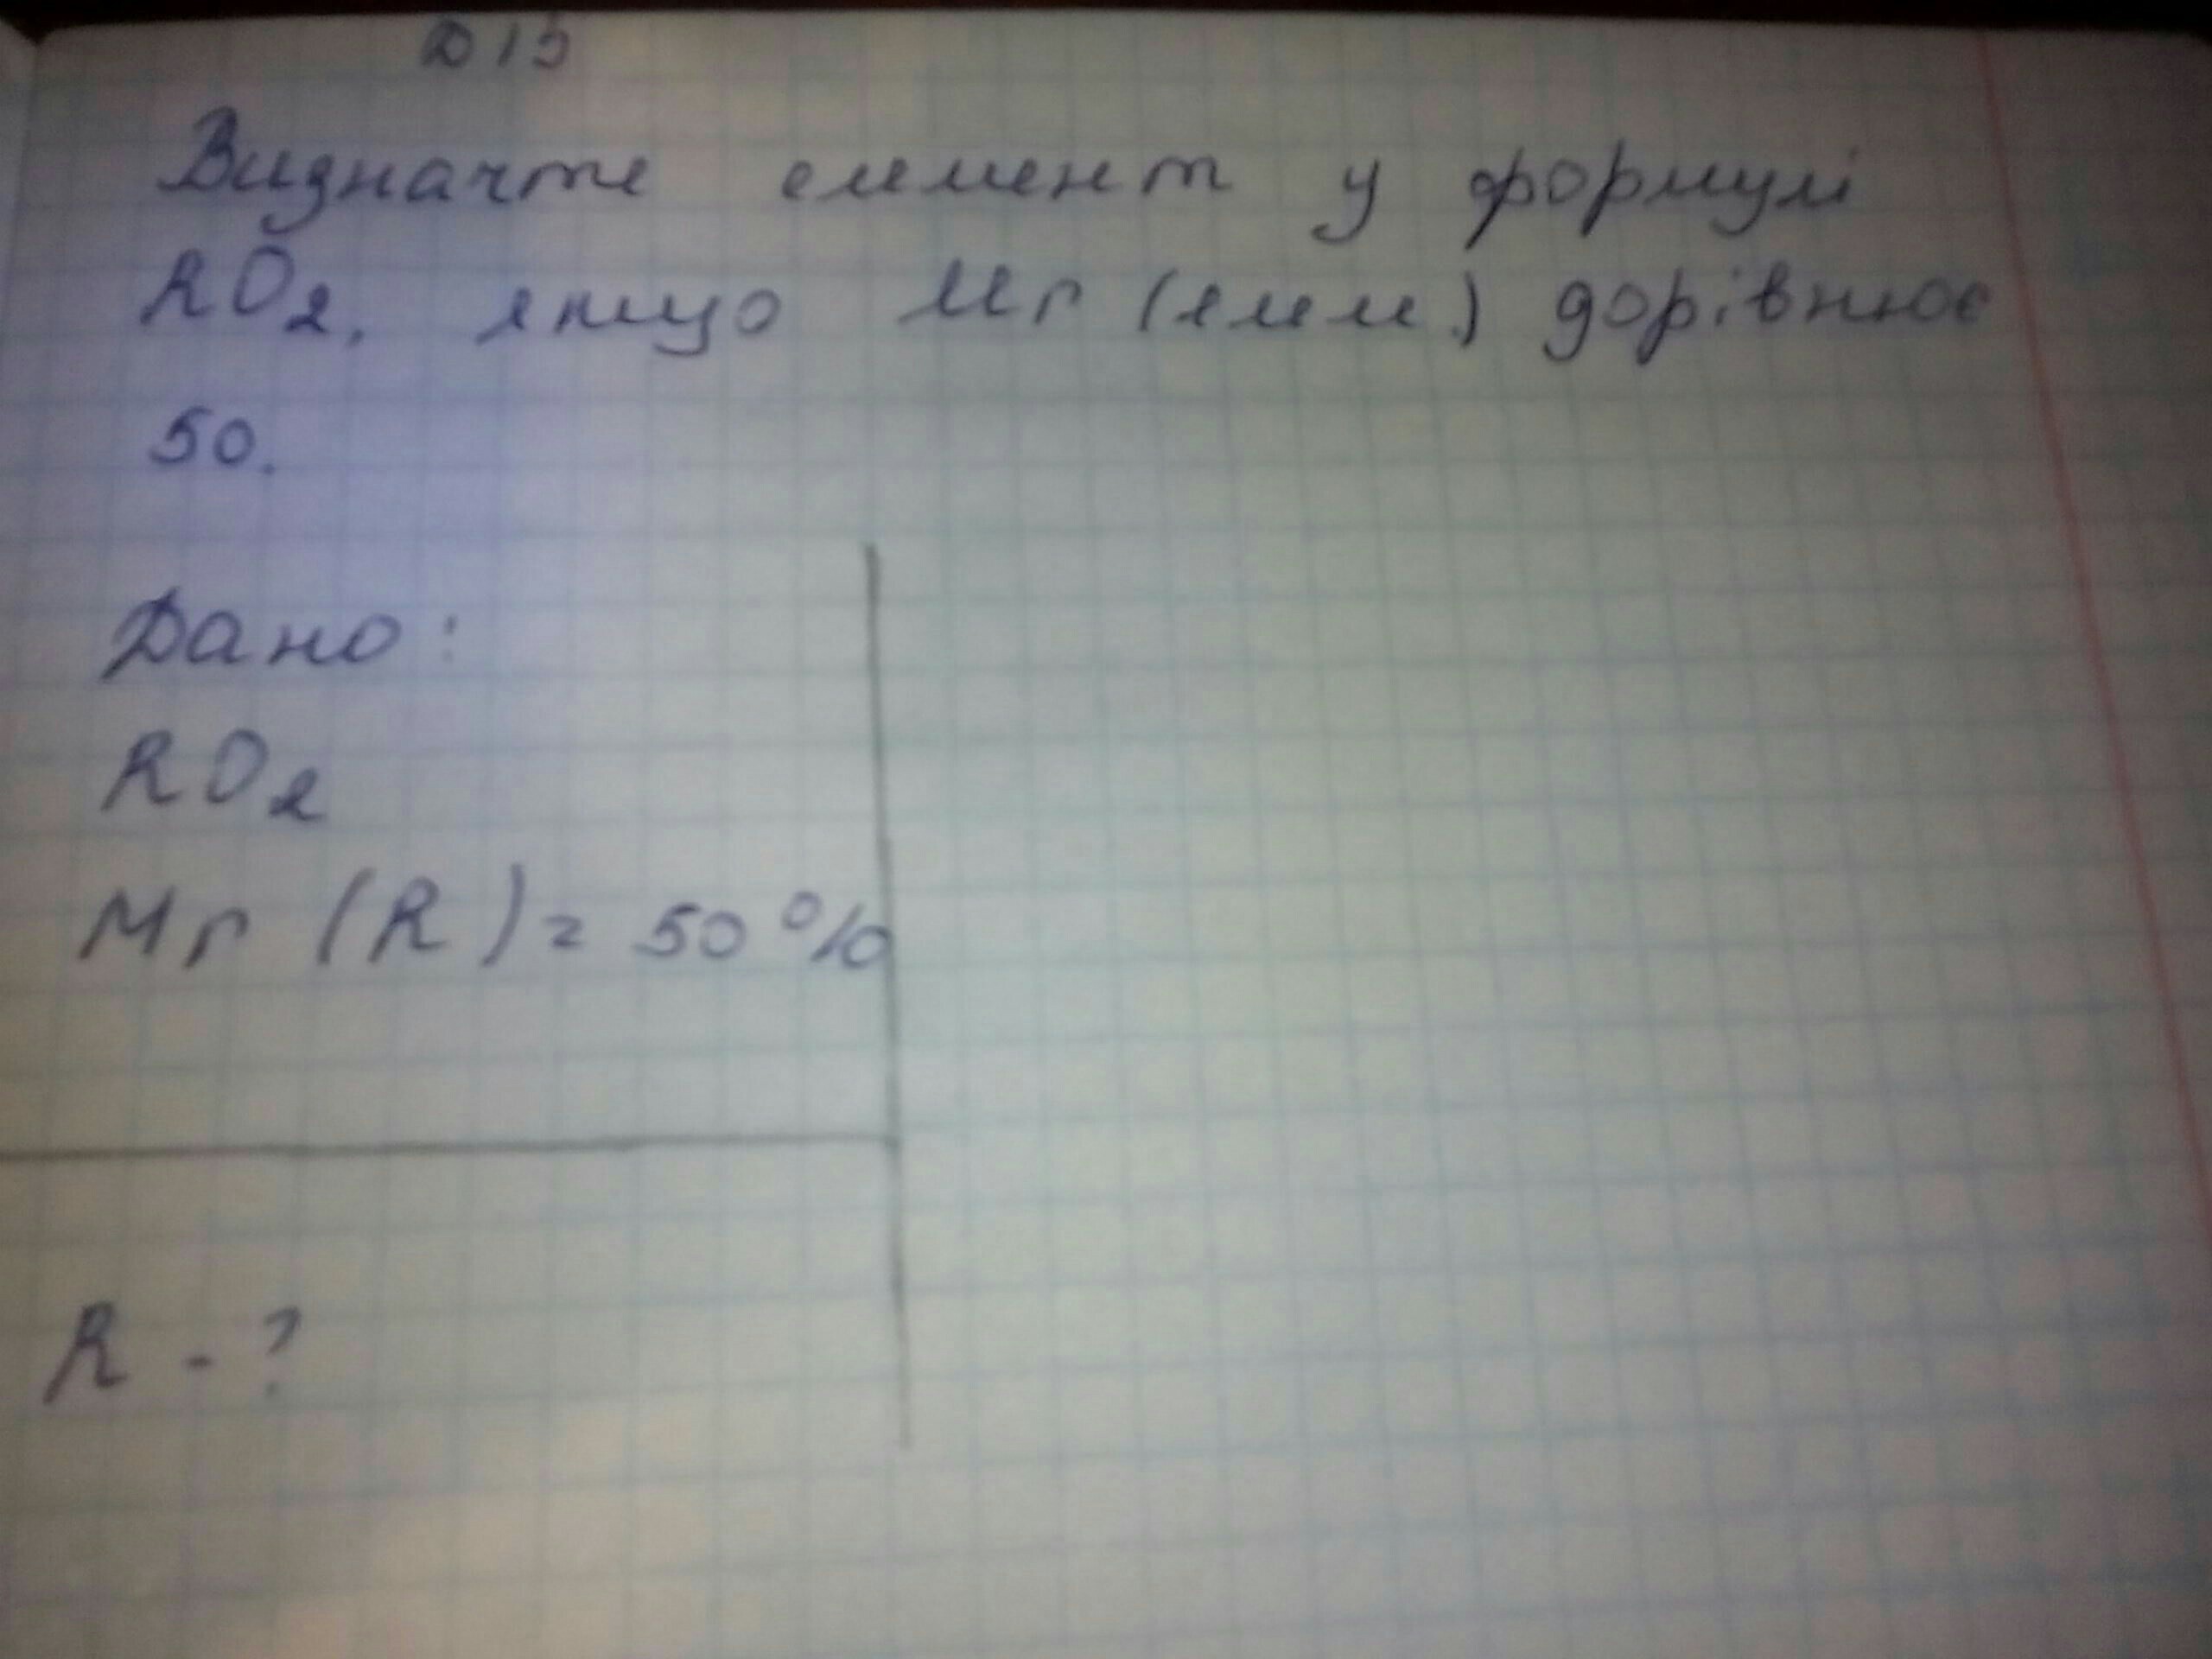 Д/З
Визначте елемент у формулі
RO₂, якщо Mr (елем.) дорівнює
50.
Дано:
RO₂
Mr (R) = 50%
R - ?